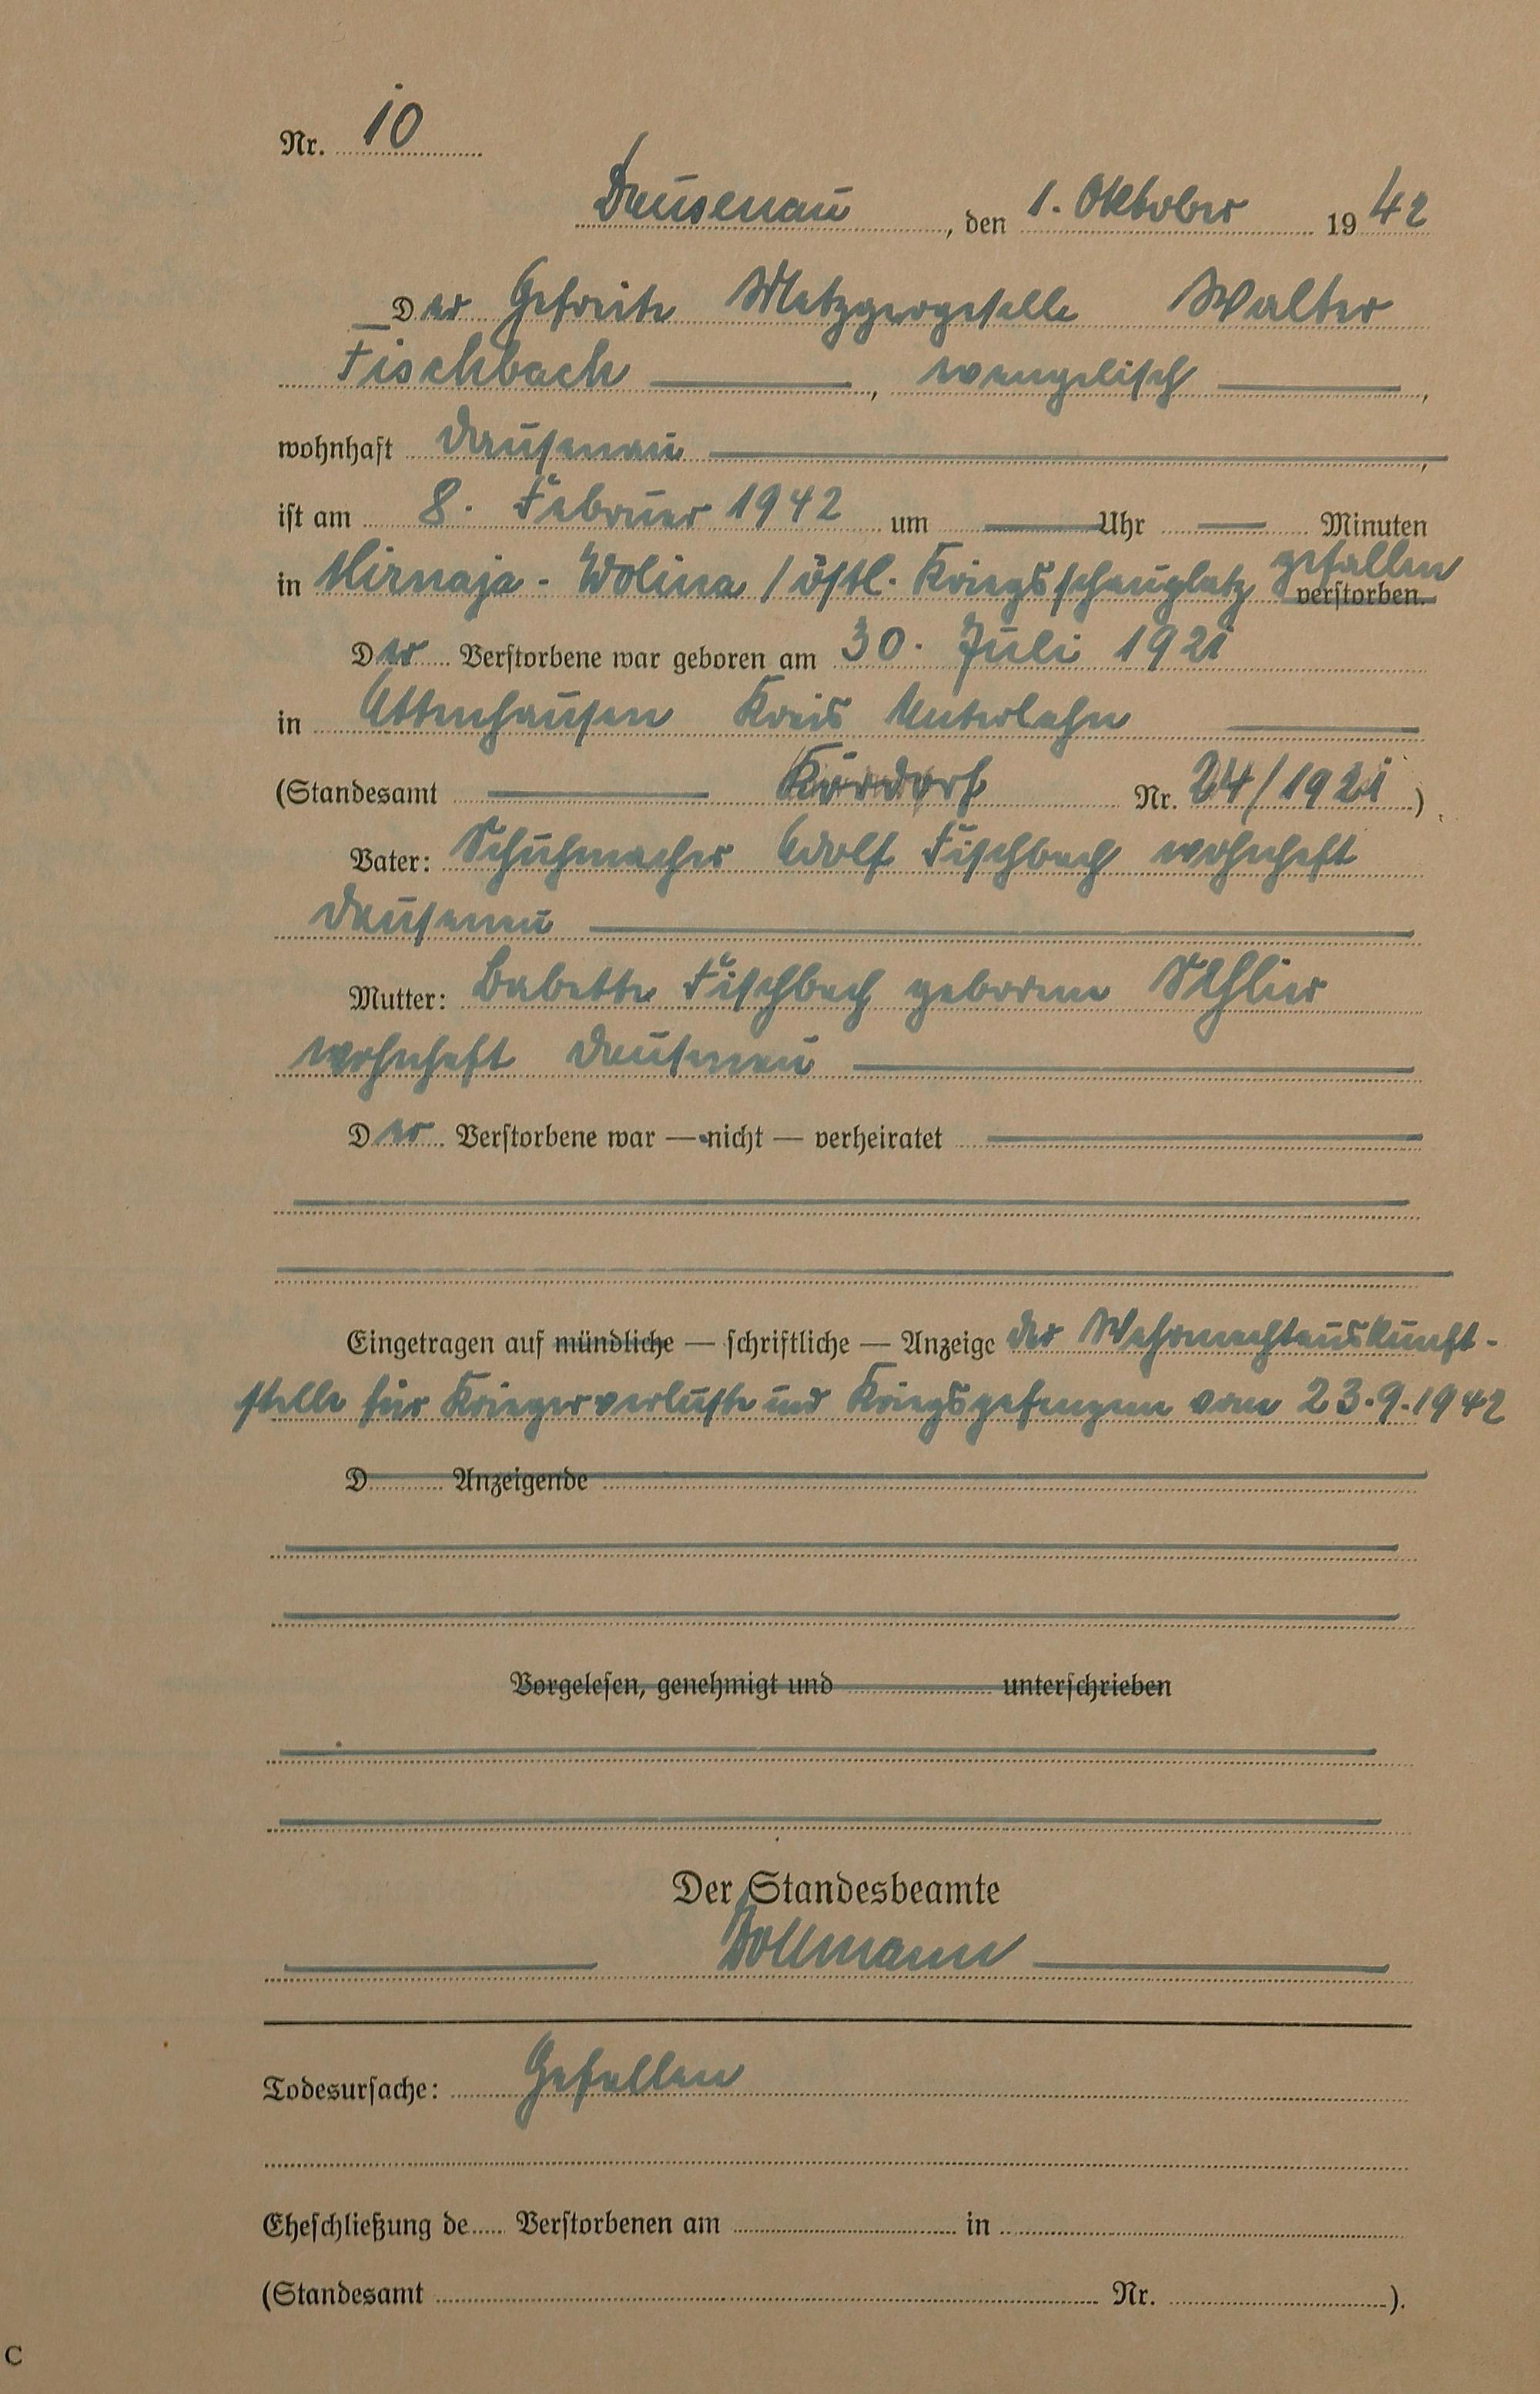 Nr. 10
Dausenau, den 1. Oktober 1942
Der Gefreite Metzgergeselle Walter
Fischbach, evangelisch,
wohnhaft Dausenau,
ist am 8. Februar 1942 um Uhr Minuten
gefallen
in Mirnaja - Wolina / östl. Kriegsschauplatz verstorben.
Der Verstorbene war geboren am 30. Juli 1921
in Attenhausen Kreis Unterlahn
(Standesamt Kördorf Nr. 24/1921).
Vater: Schuhmacher Adolf Fischbach wohnhaft
Dausenau
Mutter: Babette Fischbach geborene
wohnhaft Dausenau
Der Verstorbene war — nicht — verheiratet
Eingetragen auf mündliche — schriftliche — Anzeige der Wehrmachtauskunft-
stelle für Kriegerverluste und Kriegsgefangene vom 23.9.1942
D Anzeigende
Vorgelesen, genehmigt und unterschrieben
Der Standesbeamte
Bollmann
Todesursache: Gefallen
Eheschließung de Verstorbenen am in
(Standesamt Nr. ).
C